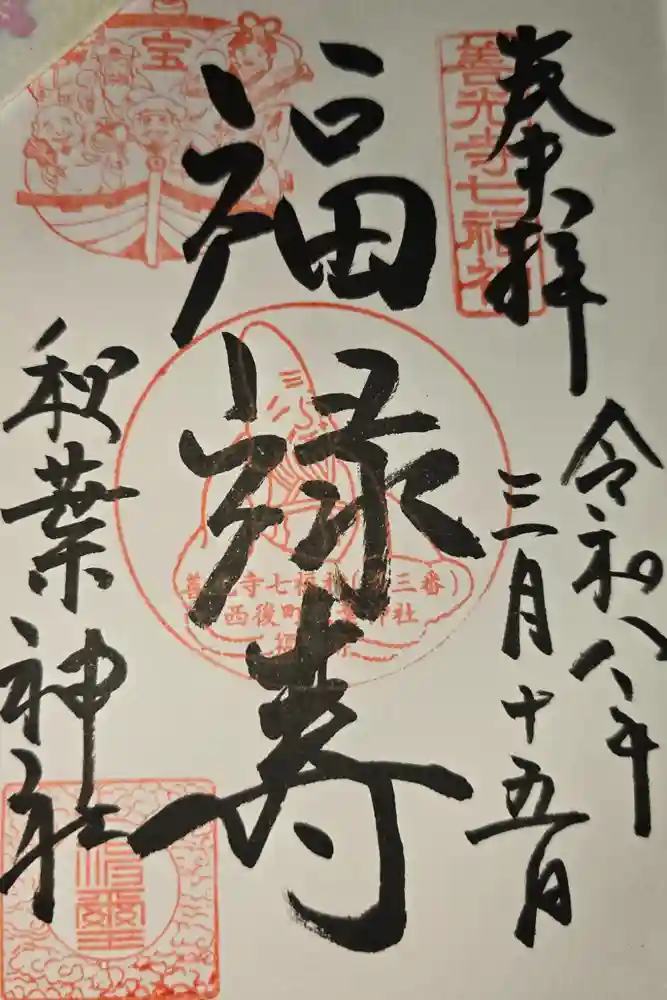 奉拝
善光寺七福神
令和八年
三月十五日
宝
福禄寿
善光寺七福神(第三番)
西後町秋葉神社
秋葉神社